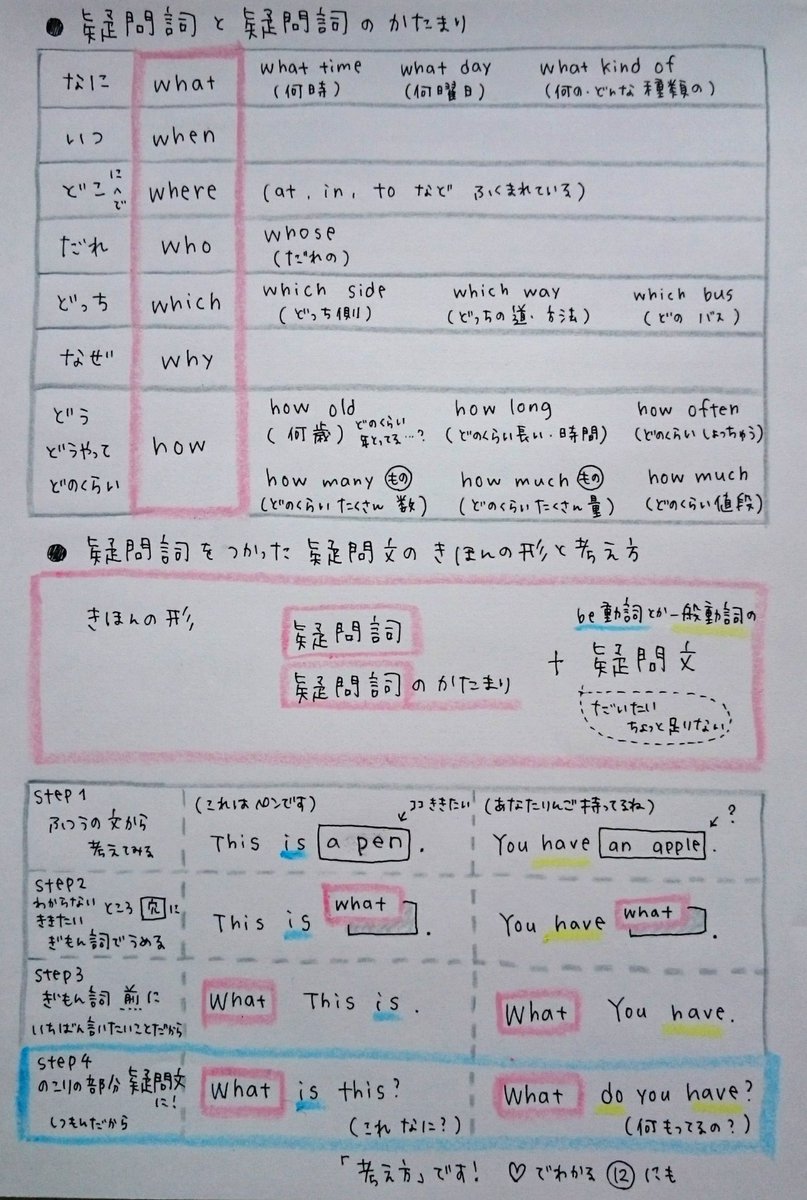 ● 疑問詞と疑問詞のかたまり
なに what what time what day what kind of
(何時) (何曜日) (何の・どんな種類の)
いつ when
どこ に へ で where (at, in, to など ふくまれている)
だれ who whose
(だれの)
どっち which which side which way which bus
(どっち側) (どっちの道・方法) (どの バス)
なぜ why
どう how how old how long how often
(何歳) どのくらい年とってる…? (どのくらい長い・時間) (どのくらい しょっちゅう)
どうやって
どのくらい how many もの how much もの how much
(どのくらい たくさん 数) (どのくらい たくさん 量) (どのくらい 値段)
● 疑問詞をつかった疑問文のきほんの形と考え方
きほんの形 疑問詞 be動詞とか一般動詞の
疑問詞のかたまり + 疑問文
だいたい
ちょっと足りない
step1 (これはペンです) ココききたい (あなたりんご持ってるね) ?
ふつうの文から This is a pen. You have an apple.
考えてみる
step2
わからない ききたい ところ 穴に This is what. You have what.
ぎもん詞でうめる
step3
ぎもん詞 前に What This is. What You have.
いちばん言いたいことだから
step4
のこりの部分 疑問文に! What is this? What do you have?
しつもんだから (これ なに?) (何もってるの?)
「考え方」です! ♡でわかる ⑫ にも